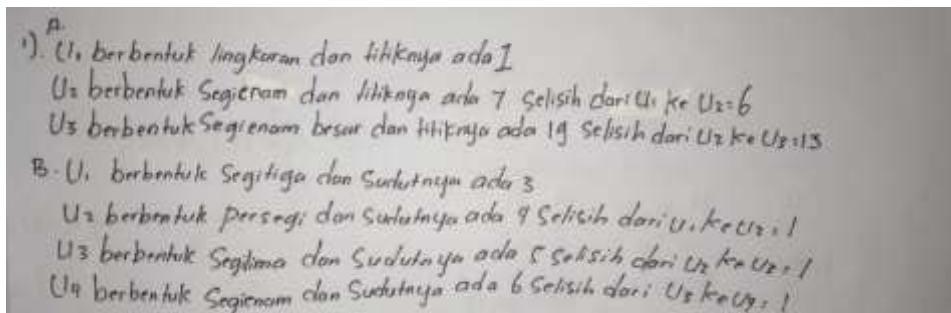 A.
1). U₁ berbentuk lingkaran dan titiknya ada 1
U₂ berbentuk Segienam dan titiknya ada 7 Selisih dari U₁ ke U₂=6
U₃ berbentuk Segienam besar dan titiknya ada 19 Selisih dari U₂ ke U₃=13
B. U₁ berbentuk Segitiga dan Sudutnya ada 3
U₂ berbentuk persegi dan Sudutnya ada 4 Selisih dari U₁ ke U₂=1
U₃ berbentuk Segilima dan Sudutnya ada 5 Selisih dari U₂ ke U₂=1
U₄ berbentuk Segienam dan Sudutnya ada 6 Selisih dari U₃ ke U₄=1